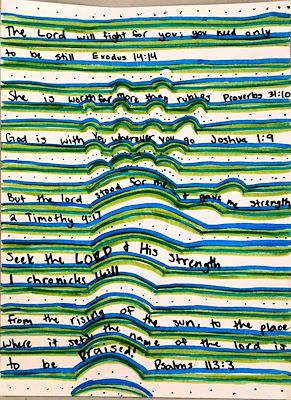 The Lord will fight for you; you need only
to be still Exodus 14:14
She is worth far more than rubies Proverbs 31:10
God is with you wherever you go Joshua 1:9
But the lord stood for me & gave me strength
2 Timothy 4:17
Seek the LORD & His strength
1 chronicles 16:11
From the rising of the sun, to the place
where it sets the name of the lord is
to be Praised! Psalms 113:3